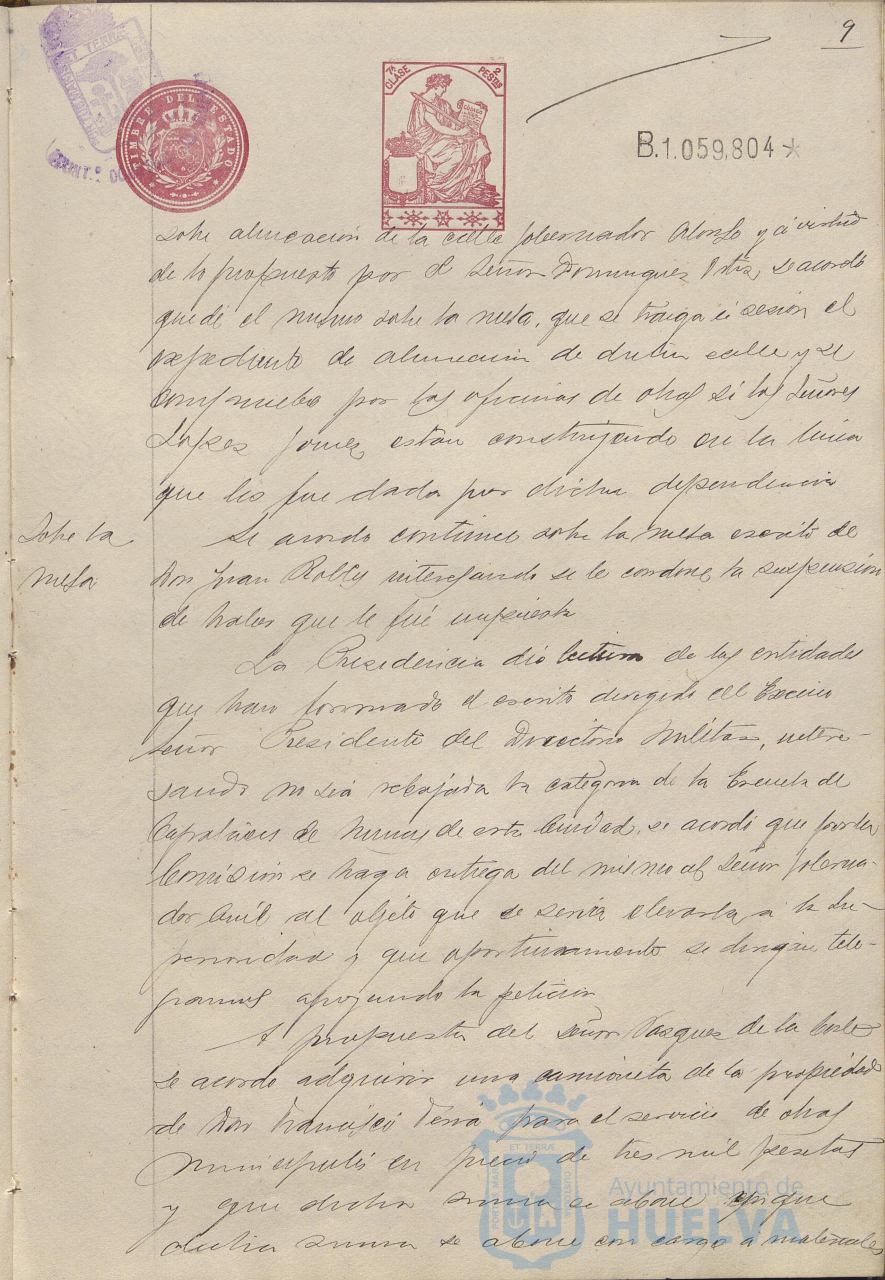 9
7ª CLASE
2 PESTAS
TIMBRE DEL ESTADO
B.1.059,804
sobre alineación de la calle Gobernador Alonso y á virtud
de lo propuesto por el Señor Dominguez Ortiz, se acordó
quede el mismo sobre la mesa, que se traiga á sesión el
expediente de alineación de dicha calle y se
compruebe por las oficinas de obras si los Señores
Lopez Gomez están construyendo en la linea
que les fue dada por dicha dependencia
Sobre la
mesa
Se acordó continue sobre la mesa escrito de
Don Juan interesando se le condone la suspensión
de haber que le fué impuesta
La Presidencia dió lectura de las entidades
que han formado el escrito dirigido al Excmo
Señor Presidente del Directorio Militar, intere-
sando no sea rebajada la categoria de la Escuela de
Capataces de Minas de esta Ciudad, se acordó que por la
Comisión se haga entrega del mismo al Señor Goberna-
dor Civil al objeto que se sirva elevarla a la Su-
perioridad y que oportunamente se dirijan tele-
gramas apoyando la petición
A propuesta del Señor Vazquez de la Corte
se acordó adquirir una camioneta de la propiedad
de Don Francisco para el servicio de obras
municipales en precio de tres mil pesetas
y que dicha suma se abone y que
dicha suma se abone con cargo á materiales
Ayuntamiento de
HUELVA